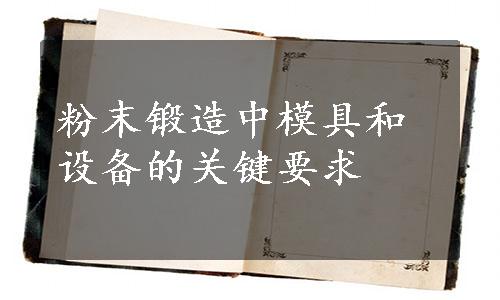 粉末锻造中模具和
设备的关键要求